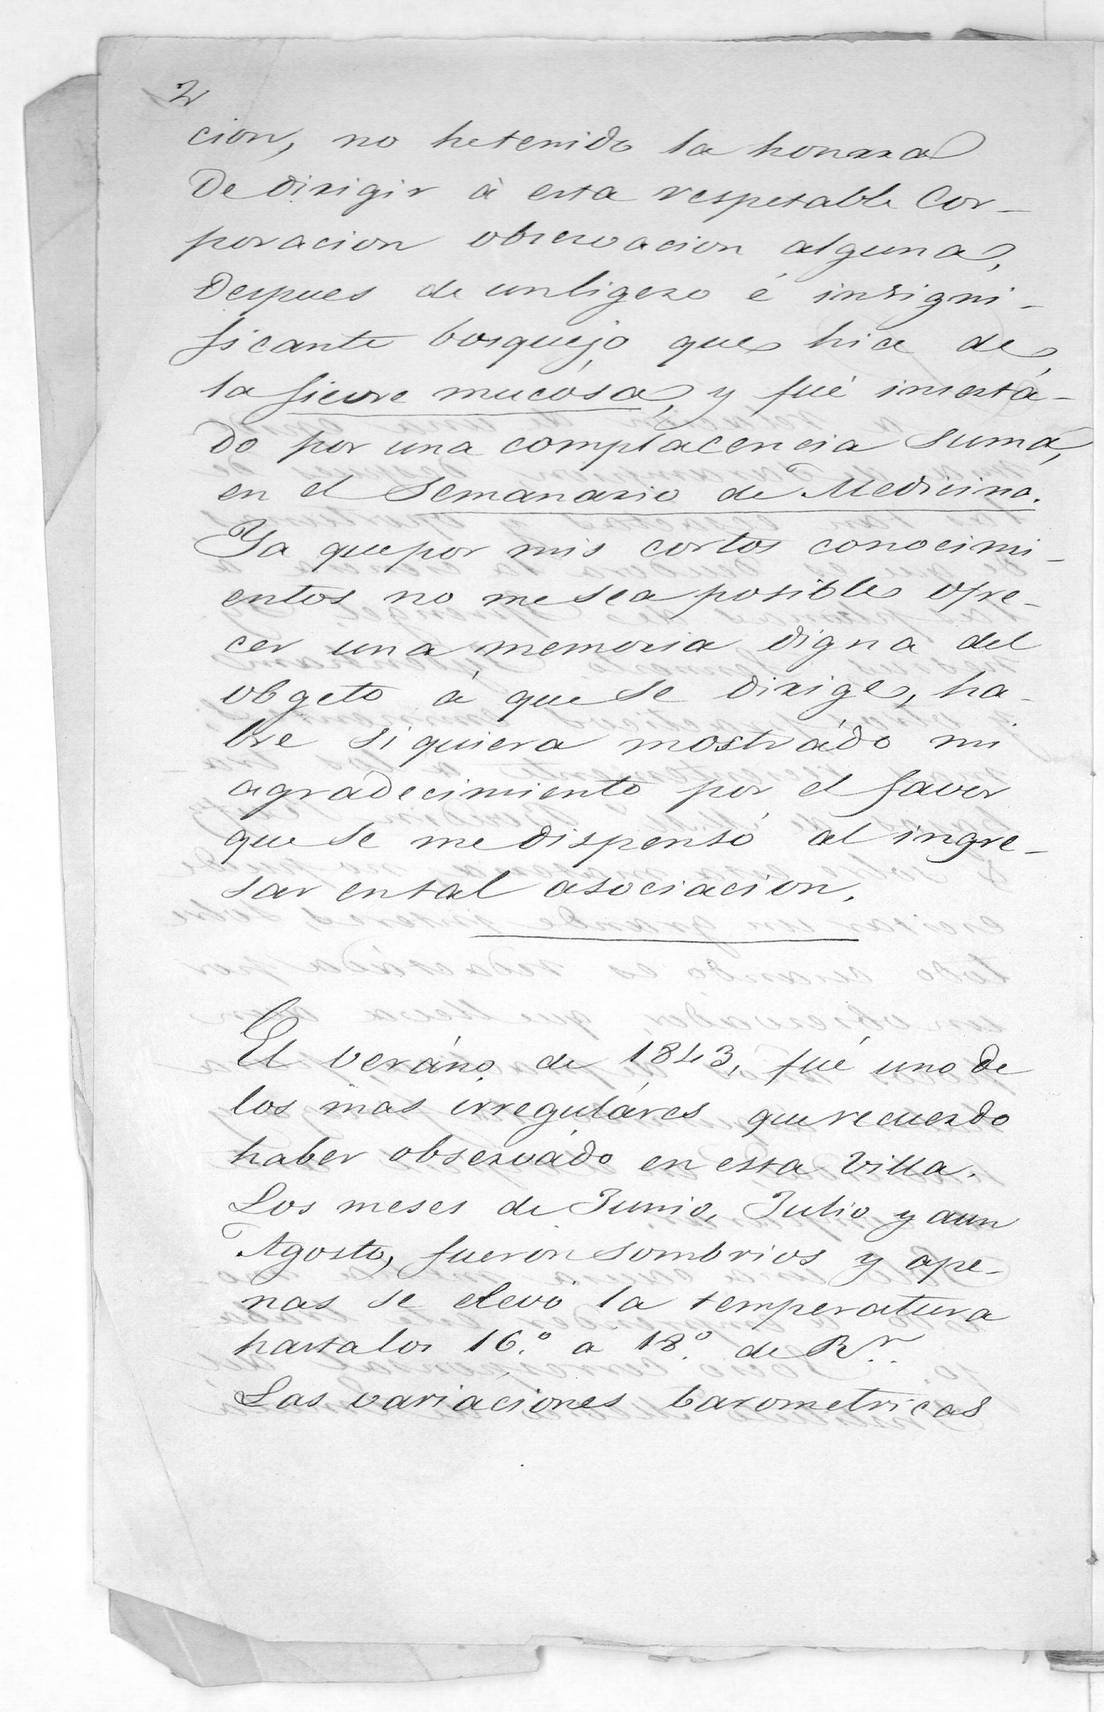 2
cion, no hetenido la honrra
De dirigir à esta respetable Cor-
poracion observacion alguna,
Despues de unligero é insigni-
ficante bosquejo que hice de
la fievre mucósa, y fué insertá-
do por una complacencia suma,
en el Semanario de Medicina.
Ya quepor mis cortos conocimi-
entos no mesea posible ofre-
cer una memoria digna del
obgeto á que se dirige, ha-
bre siquiera mostrádo mi
agradecimiento por el favor
que se me dispensó al ingre-
sar ental asociacion.
El veráno de 1843, fué uno de
los mas irreguláres que recuerdo
haber observádo en esta Villa.
Los meses de Junio, Julio y aun
Agosto, fueron sombrios y ape-
nas se elevó la temperatura
hastalos 16.º a 18.º de Rr.
Las variáciones barometricas